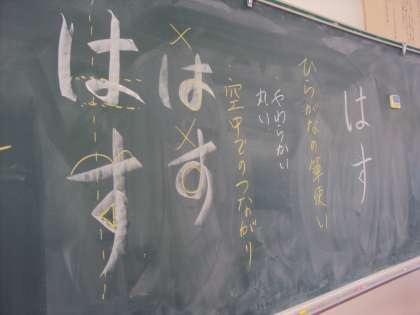 はす
ひらがなの筆使い
やわらかい
丸い
空中でのつながり
はす
はす